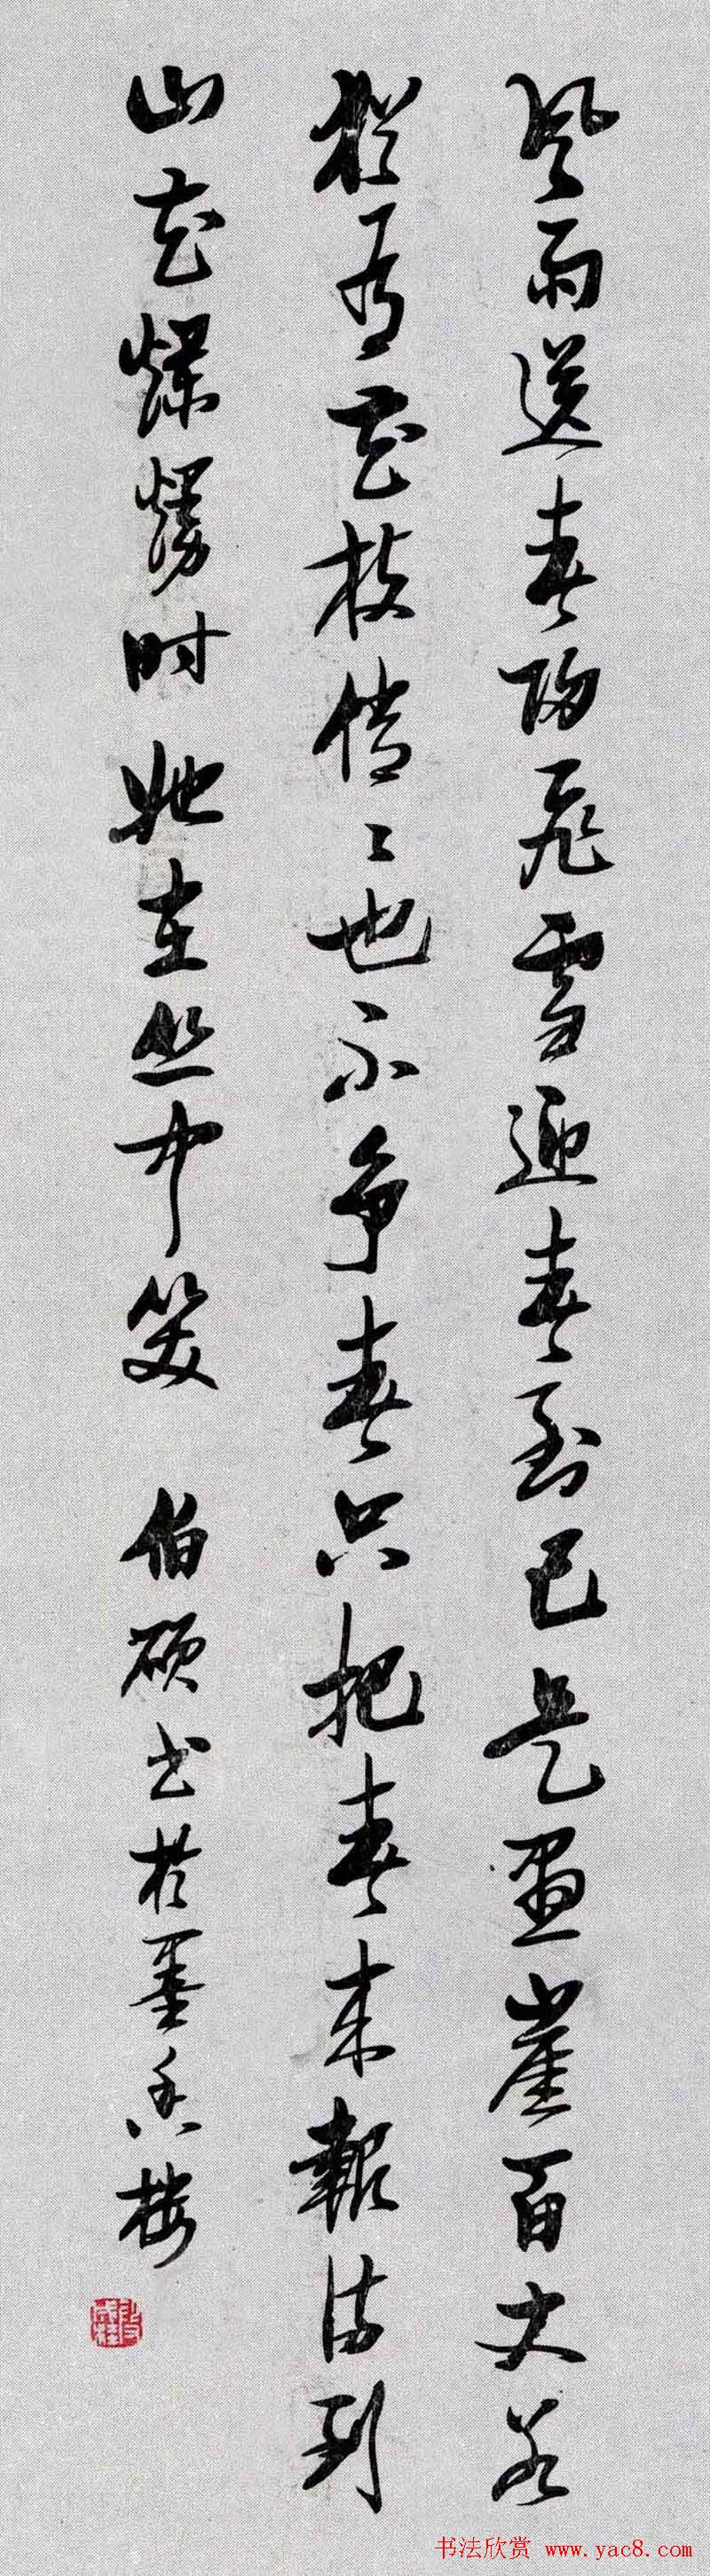 风雨送春归飞雪迎春到已是悬崖百丈冰
犹有花枝俏〻也不争春只把春来報待到
山花爛熳时她在丛中笑 伯硕书於墨香楼
书法欣赏 www.yac8.com